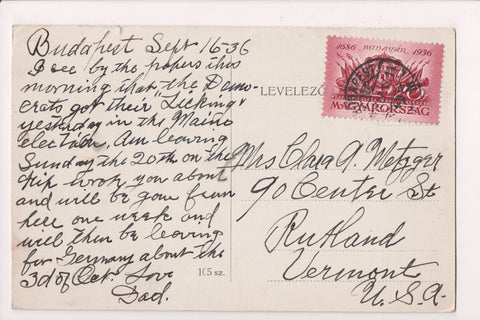 Budapest Sept 16-36
I see by the papers this
morning that the Demo-
crats got their "Licking"
yesterday in the Maine
election. Am leaving
Sunday the 20th on the
trip wrote you about
and will be gone from
here one week and
will then be leaving
for Germany about the
3d of Oct. Love
Dad.
105 sz.
1686 BUDAVÁR 1936
MAGYARORSZÁG
LEVELEZŐ
Mrs Clara A. Metzger
90 Center St
Rutland
Vermont
U.S.A.